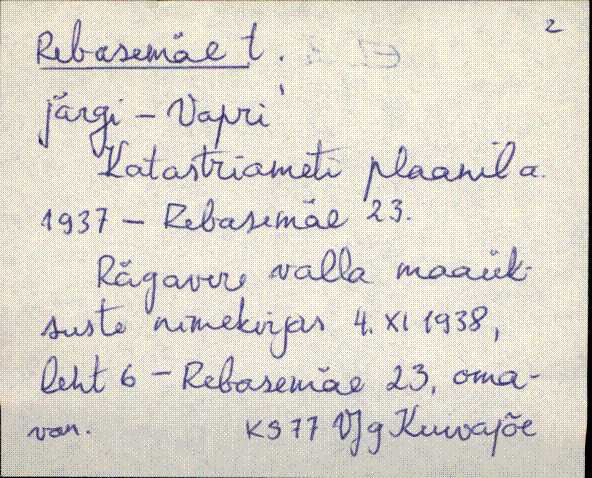 2
Rebasemäe t.
järgi – Vapri
Katastriameti plaanil a.
1937 – Rebasemäe 23.
Rägavere valla maaük-
suste nimekirjas 4. XI 1938,
leht 6 – Rebasemäe 23, oma-
van. KS77 VJg Kuuvajõe